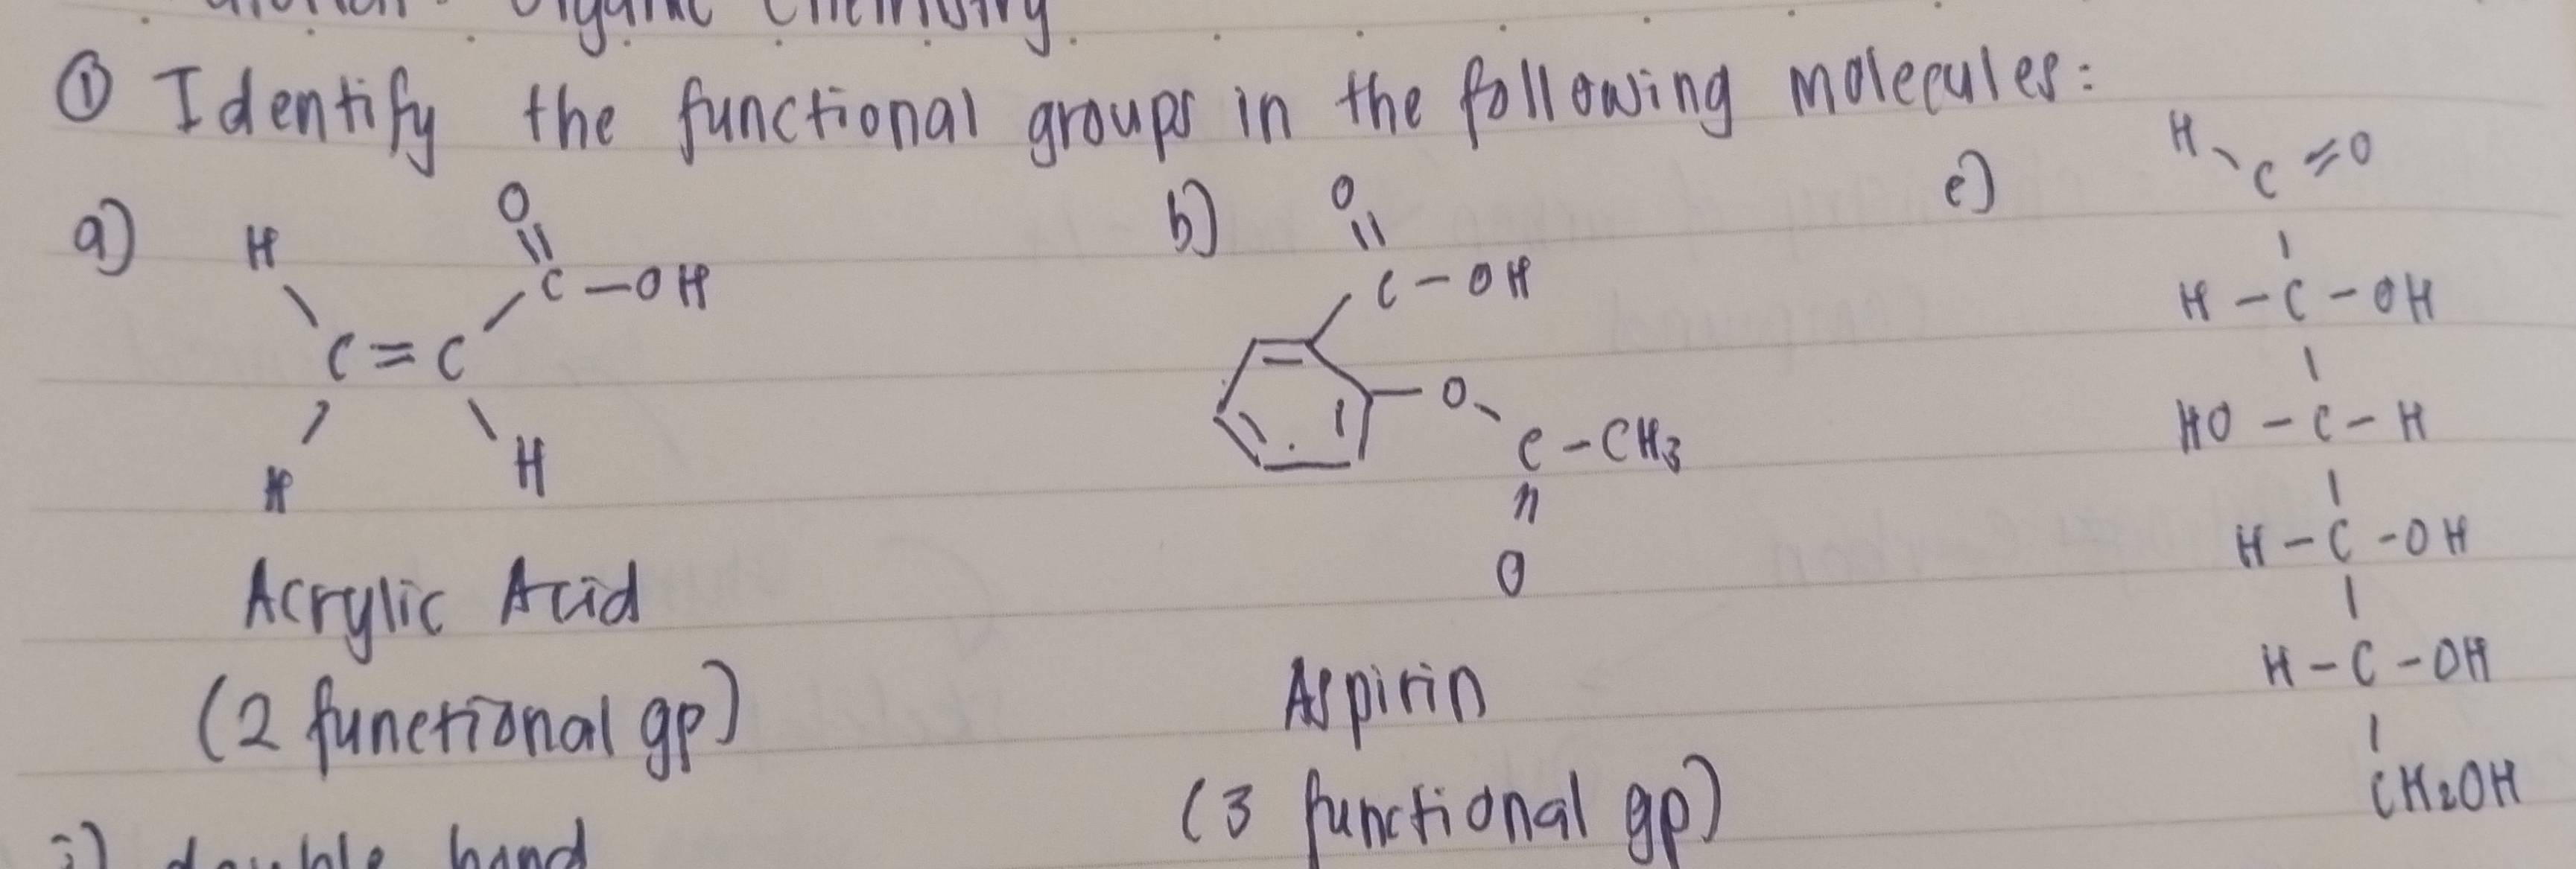 Organic Chemistry
① Identify the functional groups in the following molecules:
a)
H
O
C-OH
C=C
H
H
Acrylic Acid
(2 functional gp)
b)
O
C-OH
O
C-CH3
O
Aspirin
(3 functional gp)
c)
H
C=O
H-C-OH
HO-C-H
H-C-OH
H-C-OH
CH2OH
i) double bond